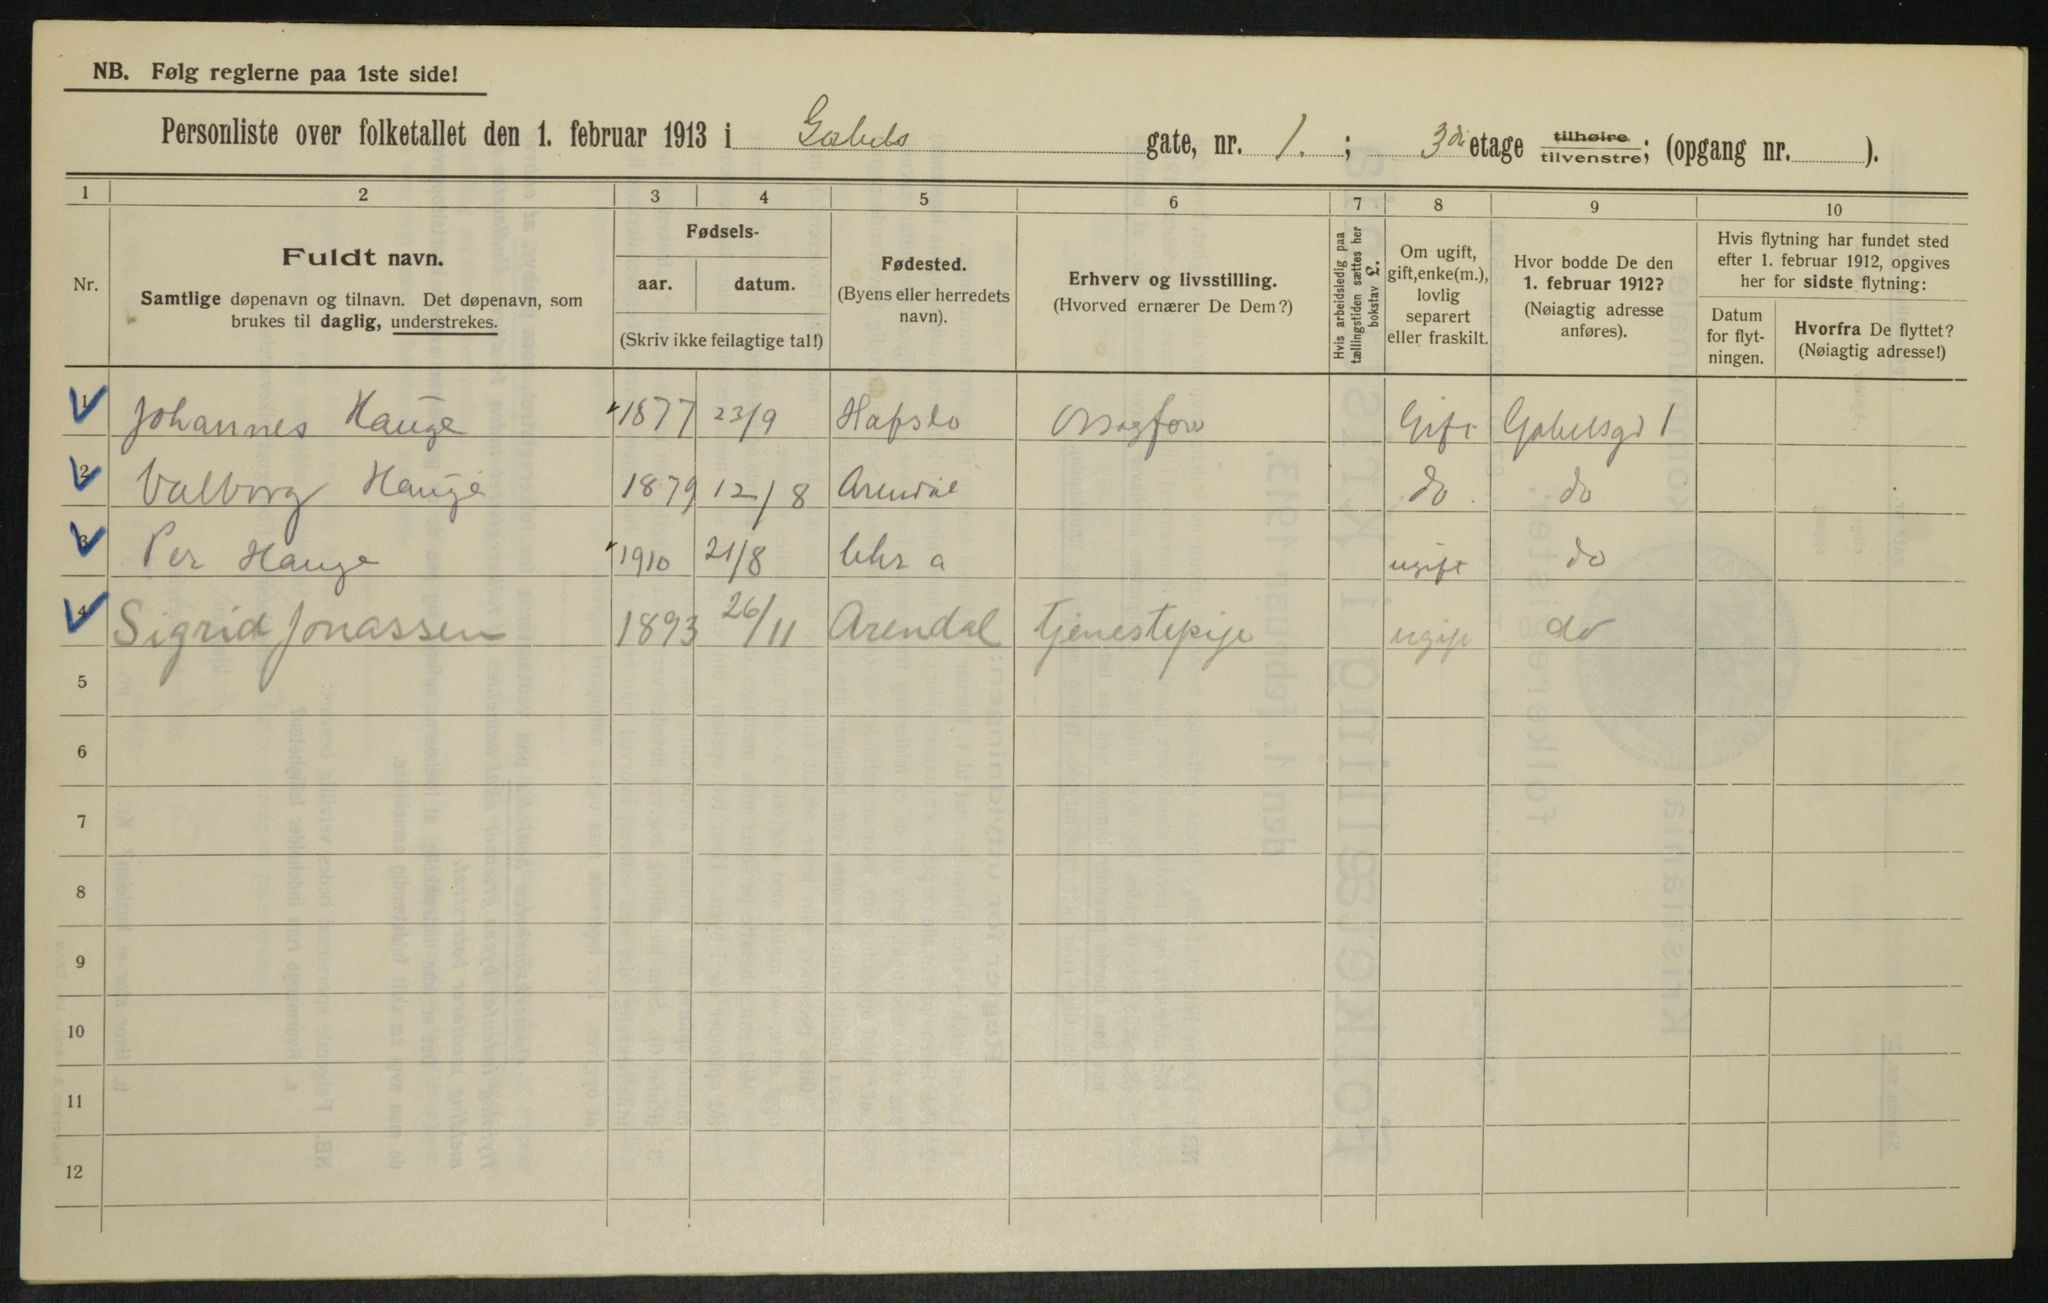 NB. Følg reglerne paa 1ste side!
Personliste over folketallet den 1. februar 1913 i Gabels gate, nr. 1. ; 3di etage tilhøire tilvenstre; (opgang nr. ).
1 2 3 4 5 6 7 8 9 10
Nr.
Fuldt navn.
Samtlige døpenavn og tilnavn. Det døpenavn, som
brukes til daglig, understrekes.
Fødsels-
aar. datum.
(Skriv ikke feilagtige tal!)
Fødested.
(Byens eller herredets
navn).
Erhverv og livsstilling.
(Hvorved ernærer De Dem?)
Hvis arbeidsledig paa
tællingstiden sættes her
bokstav £.
Om ugift,
gift, enke(m.),
lovlig
separert
eller fraskilt.
Hvor bodde De den
1. februar 1912?
(Nøiagtig adresse
anføres).
Hvis flytning har fundet sted
efter 1. februar 1912, opgives
her for sidste flytning:
Datum
for flyt-
ningen.
Hvorfra De flyttet?
(Nøiagtig adresse!)
1 Johannes Hauge 1877 23/9 Hafslo Gift Gabelsgd 1
2 Valborg Hauge 1879 12/8 Arendal do do
3 Per Hauge 1910 21/8 Chr a ugift do
4 Sigrid Jonassen 1893 26/11 Arendal Tjenestepige ugift do
5
6
7
8
9
10
11
12